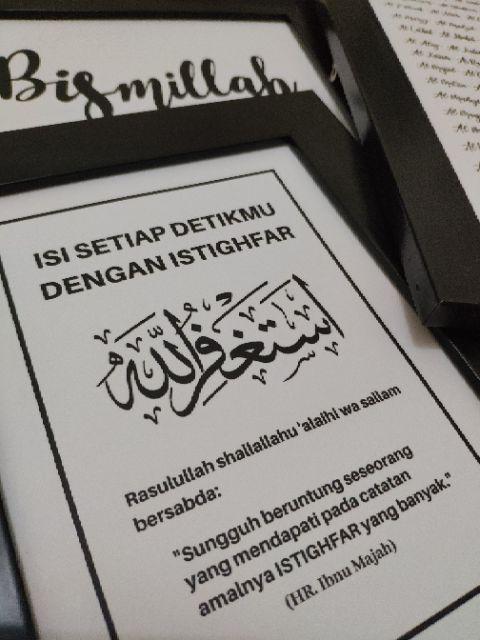 Bismillah
ISI SETIAP DETIKMU
DENGAN ISTIGHFAR
أستغفر الله
Rasulullah shallallahu 'alaihi wa sallam
bersabda:
"Sungguh beruntung seseorang
yang mendapati pada catatan
amalnya ISTIGHFAR yang banyak."
(HR. Ibnu Majah)